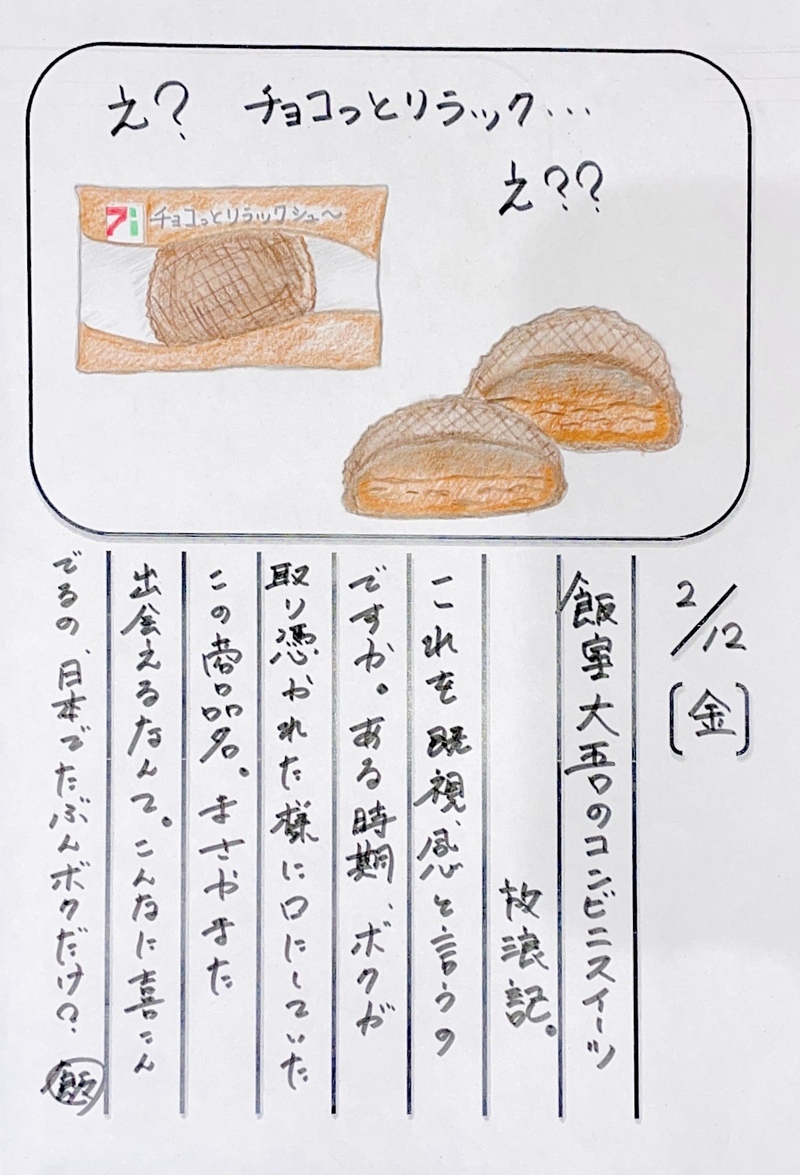 え? チョコっとリラック…
え??
チョコっとリラックシュ〜
2/12(金)
飯室大吾のコンビニスイーツ
放浪記。
これを既視感と言うの
ですか。ある時期、ボクが
取り憑かれた様に口にしていた
この商品名。まさかまた
出会えるなんて。こんなに喜こん
でるの、日本でたぶんボクだけ?
飯